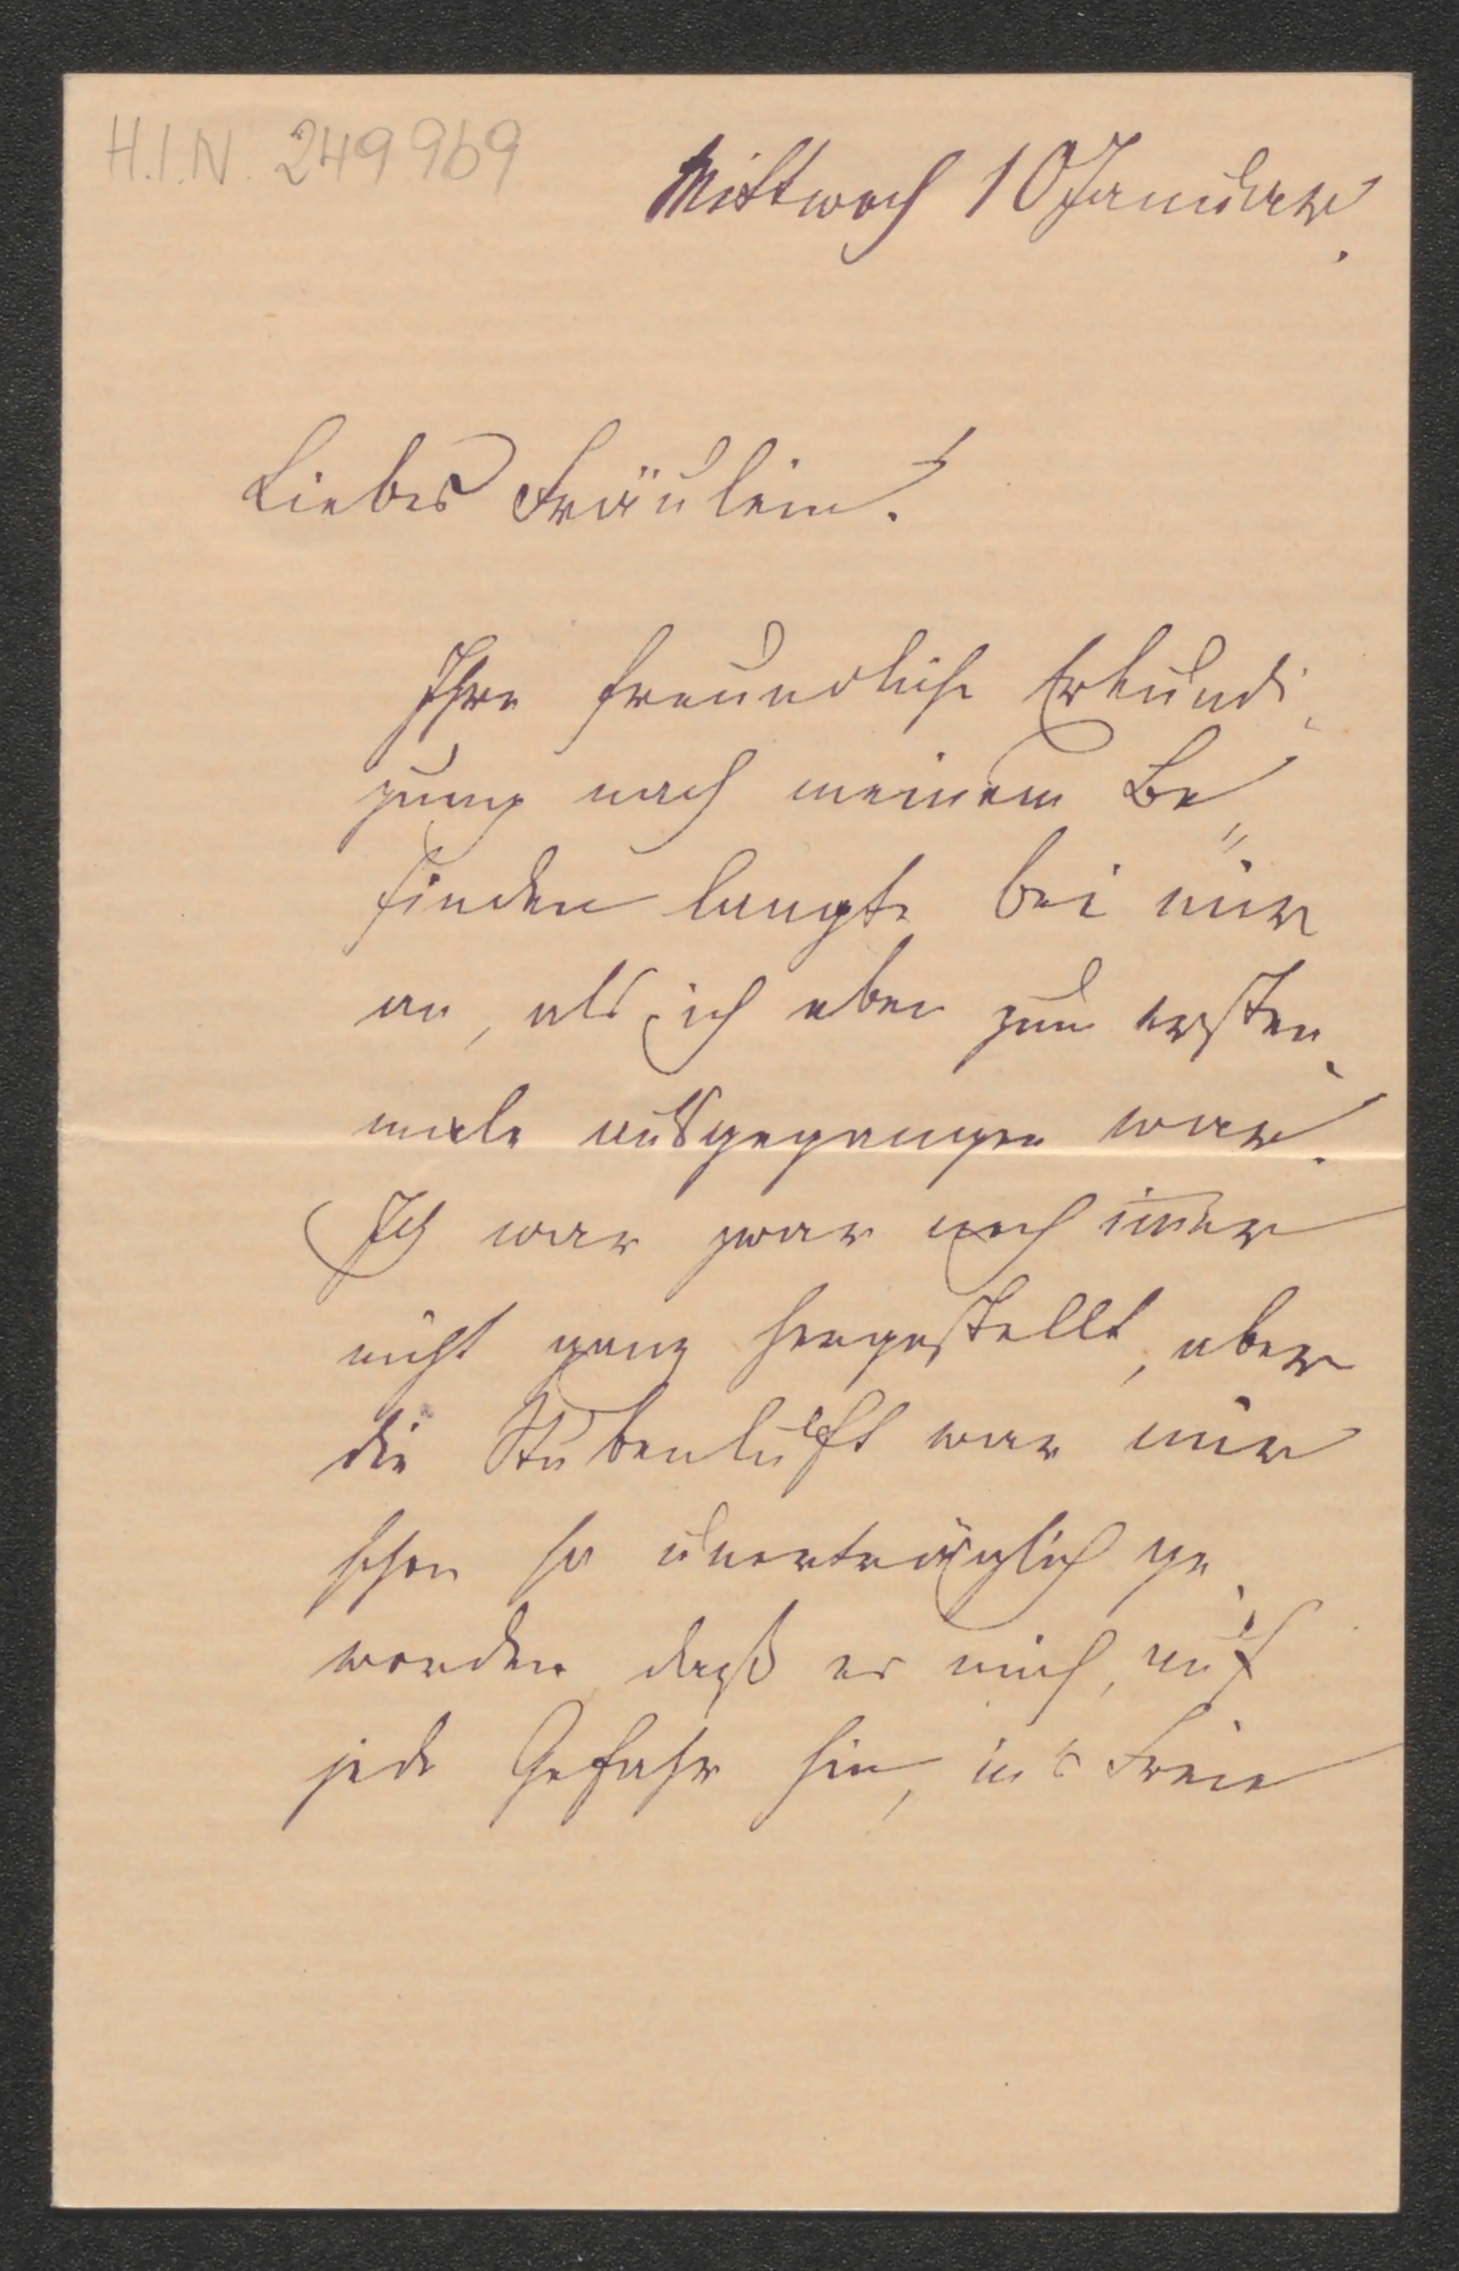 H.I.N. 249969
Mittwoch 10 Januar.
Liebes Fräulein!
Ihre freundliche Erkundi-
gung nach meinem Be-
finden langte bei mir
an, als ich eben zum ersten-
male ausgegangen war.
Ich war zwar noch im̅er
nicht ganz hergestellt, aber
die Stubenluft war mir
schon so unerträglich ge-
worden daß es mich, auf
jede Gefahr hin, in's Freie